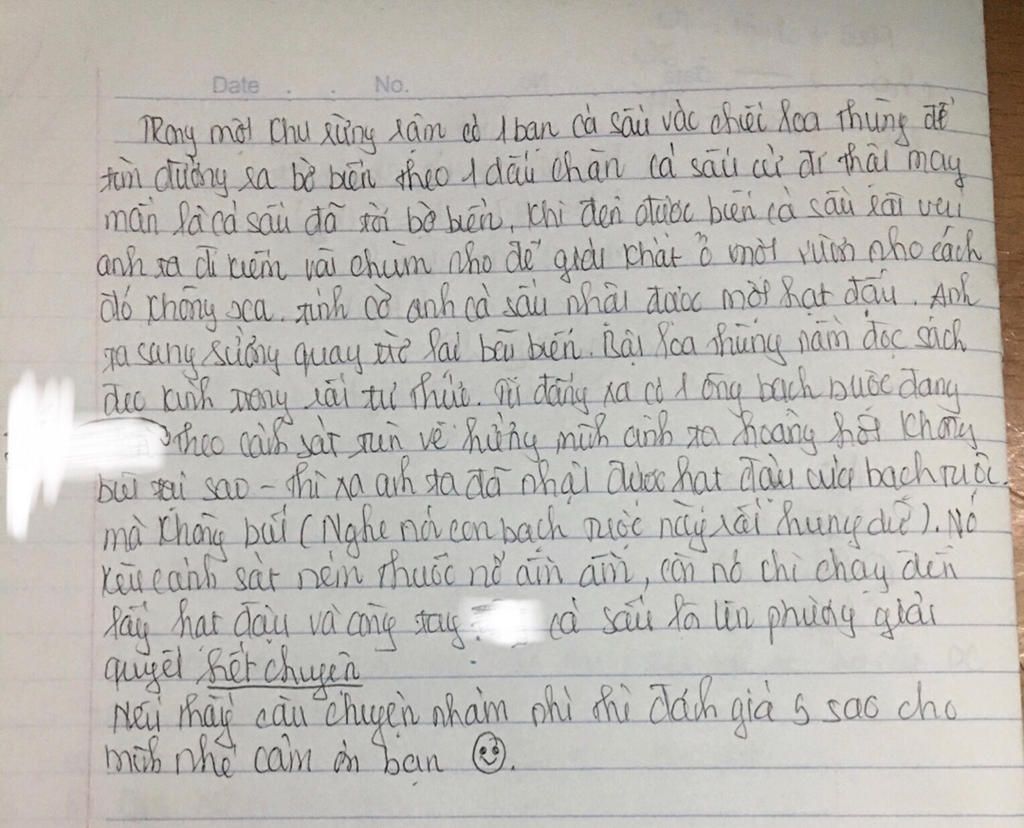 Date . . No.
Trong một khu rừng rậm có 1 bạn cá sấu vác chiếc loa thùng để
tìm đường ra bờ biển theo 1 dấu chân cá sấu cứ đi thật may
mắn là cá sấu đã tới bờ biển, khi đến được biển cá sấu rất vui
anh ta đi kiếm vài chùm nho để giải khát ở một vườn nho cách
đó không xa. tình cờ anh cá sấu nhặt được một hạt đậu. Anh
ta sung sướng quay trở lại bãi biển. Bật loa thùng nằm đọc sách
đeo kính trong rất tri thức. Từ đằng xa có 1 ông bạch tuộc đang
theo cảnh sát tiến về hướng mình anh ta hoảng hốt không
biết tại sao - thì ra anh ta đã nhặt được hạt đậu của bạch tuộc.
mà không biết (Nghe nói con bạch tuộc này rất hung dữ). Nó
kêu cảnh sát ném thuốc nổ ầm ầm, còn nó chỉ chạy đến
lấy hạt đậu và còng tay cá sấu lên phường giải
quyết hết chuyện
Nếu thấy câu chuyện nhảm nhí thì đánh giá 5 sao cho
mình nhé cảm ơn bạn ☺.